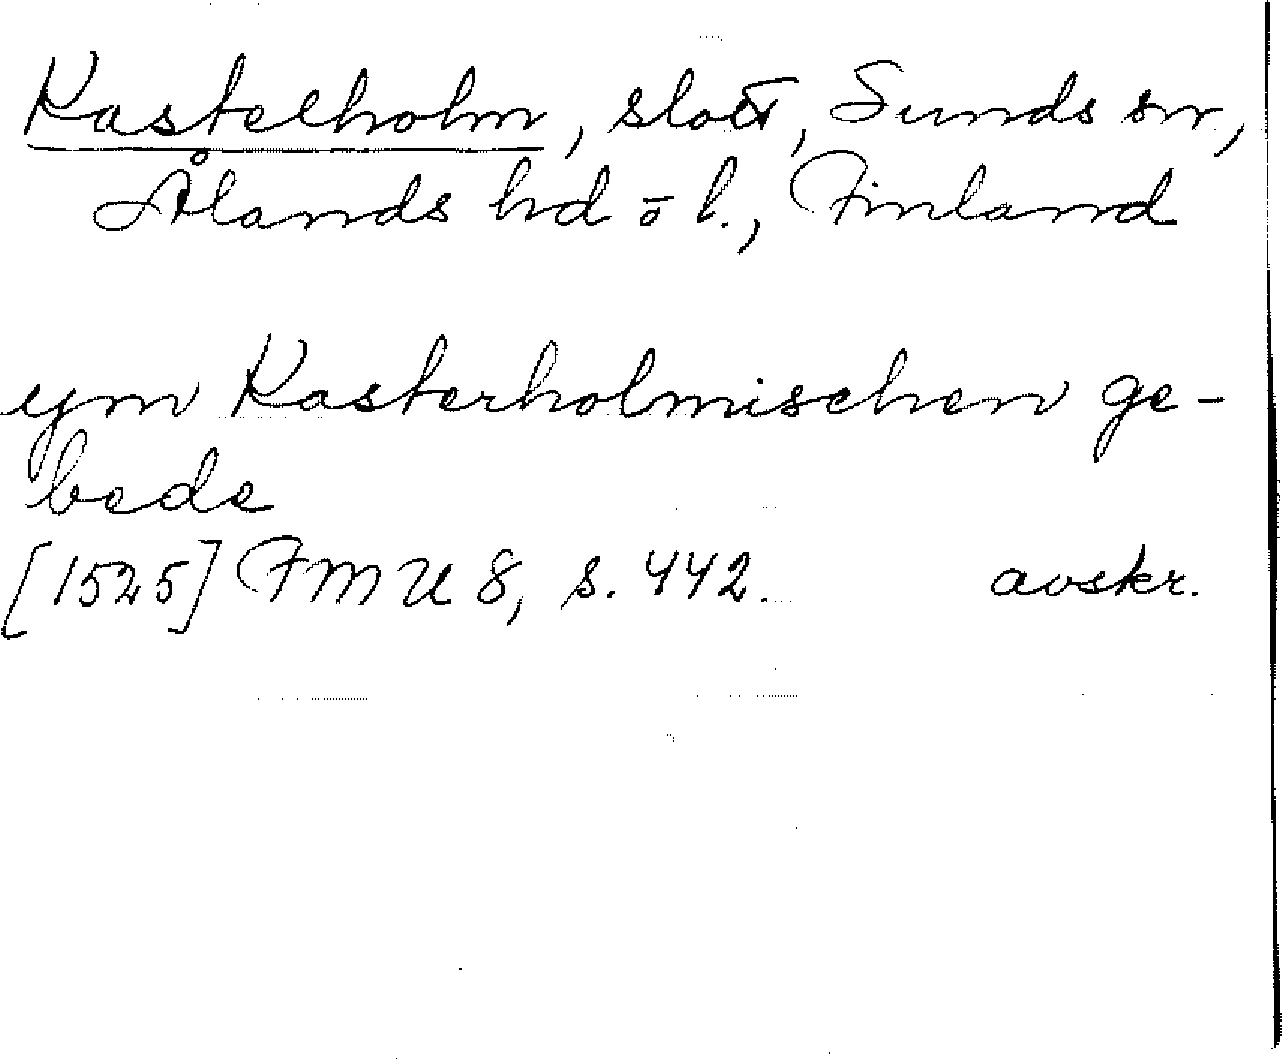 Kastelholm, slott, Sunds sn,
Ålands hd o l., Finland
ym Kasterholmischen ge-
bede
[1525] FMU 8, s. 442. avskr.